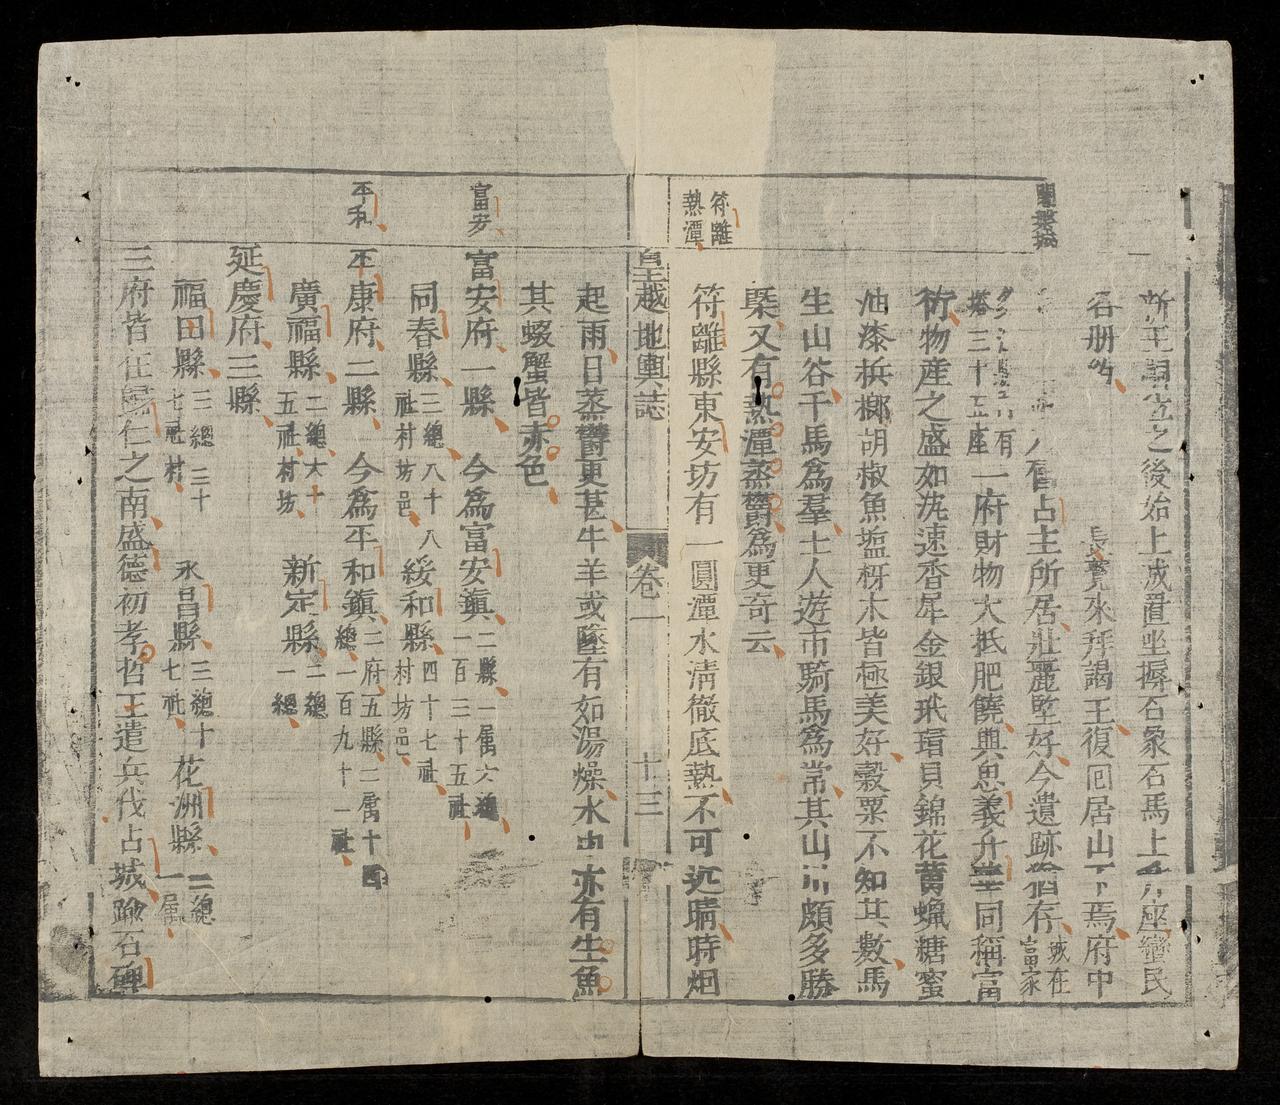 之後始上成置坐擀石象石馬上 座蠻民
各册
來拜謁王復囘居山下焉府中
舊占主所居壯麗堅好今遺跡猶存
城在
富家
三十五座
有
一府財物大抵肥饒與思義升華同稱富
衍物産之盛如沈速香犀金銀玳瑁貝錦花黃蠟糖蜜
油漆梹榔胡椒魚塩枒木皆極美好穀粟不知其數馬
生山谷千馬爲羣士人遊市騎馬爲常其山川頗多勝
槩又有熱潭蒸鬱爲更奇云
符離
熱潭
符離縣東安坊有一圓潭水清徹底熱不可近晴時烟
皇越地輿誌 卷一 十三
起雨日蒸鬱更甚牛羊或墜有如湯燥水由亦有生魚
其蝦蟹皆赤色
富安
富安府一縣 今爲富安鎮
二縣一属六總
一百三十五社
同春縣
三總八十八
社村坊邑
綏和縣
四十七社
村坊邑
平和
平康府二縣 今爲平和鎮
二府五縣二属十四
總一百九十一社
廣福縣
二總六十
五社村坊
新定縣
二總
一總
延慶府三縣
福田縣
三總三十
七社村
永昌縣
三總十
七社
花洲縣
二總
一属
三府皆在歸仁之南盛德初孝哲王遣兵伐占城踰石碑